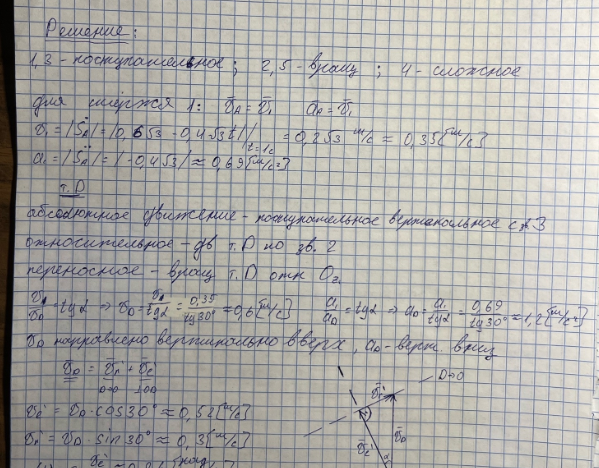 Решение:
1,3 - поступательное; 2,5 - вращ; 4 - сложное
для стержня 1: v̄A = v̄1 aA = v̄1
v1 = |ṠA| = |0,6√3 - 0,4√3t| |t=1c = 0,2√3 м/с ≈ 0,35 [м/с]
a1 = |S̈A| = |-0,4√3| ≈ 0,69 [м/с²]
т. D
абсолютное движение - поступательное вертикальное с 3
относительное - дв т. D по зв. 2
переносное - вращ т. D отн O2
vA/vD = tg2 ⇒ vD = vA/tg2 = 0,35/tg30° ≈ 0,6 [м/с] a1/aD = tg2 ⇒ aD = a1/tg2 = 0,69/tg30° ≈ 1,2 [м/с²]
vD направлено вертикально вверх, aD - верт. вниз
v̄D = v̄r + v̄e
D→O
ve = vD · cos30° ≈ 0,52 [м/с]
vr = vD · sin30° ≈ 0,3 [м/с]
v̄r
v̄e
v̄D